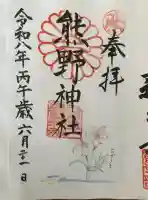 奉拝
熊野神社
令和八年丙午歳六月二十一日